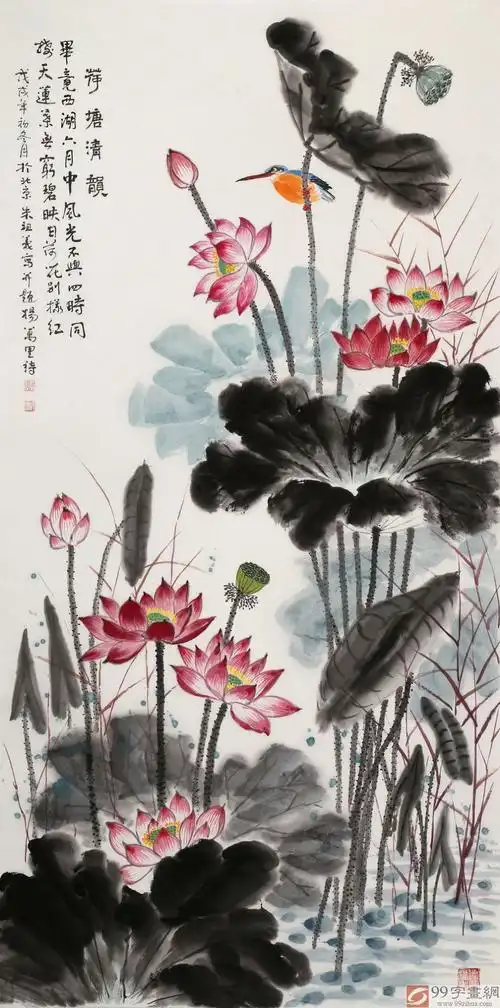 荷塘清韻
畢竟西湖六月中風光不與四時同
接天蓮葉無窮碧映日荷花別樣紅
戊戌年初冬月於北京朱祖義寫並題楊萬里詩
99字畫網
www.99zihua.com